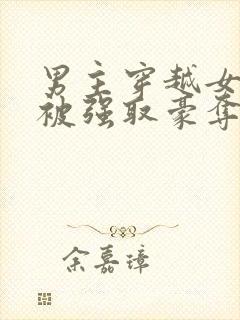 男主穿越女
被强取豪夺
余嘉璋